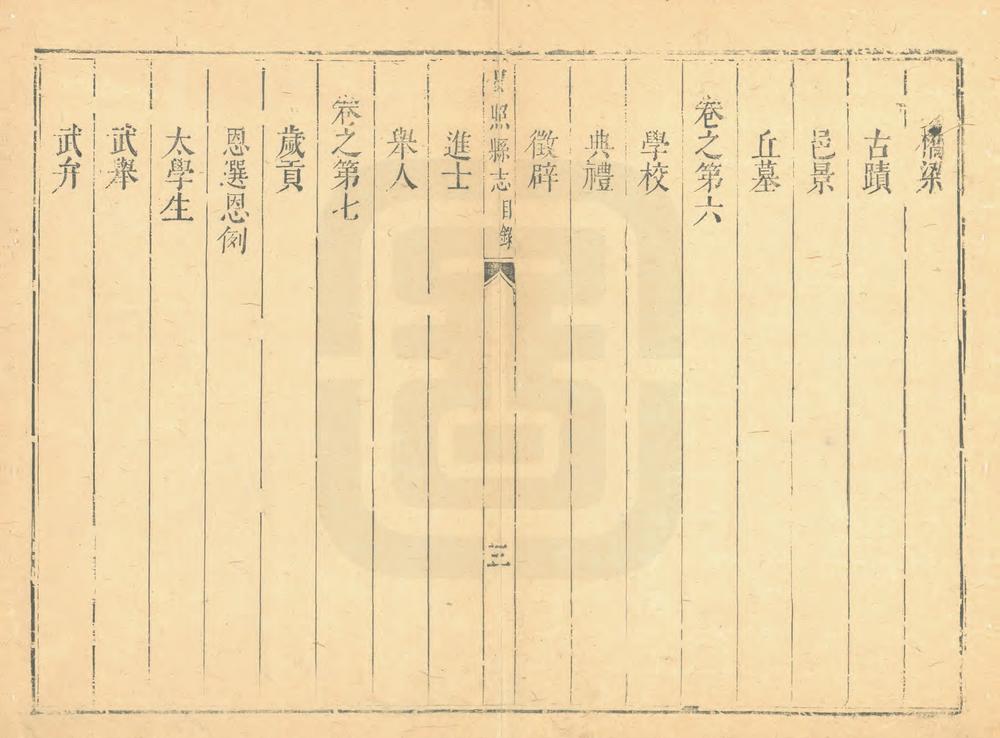 橋梁
古蹟
邑景
丘墓
卷之第六
學校
典禮
徵辟
照縣志 目錄
三
進士
舉人
卷之第七
歲貢
恩選恩例
太學生
武舉
武弁